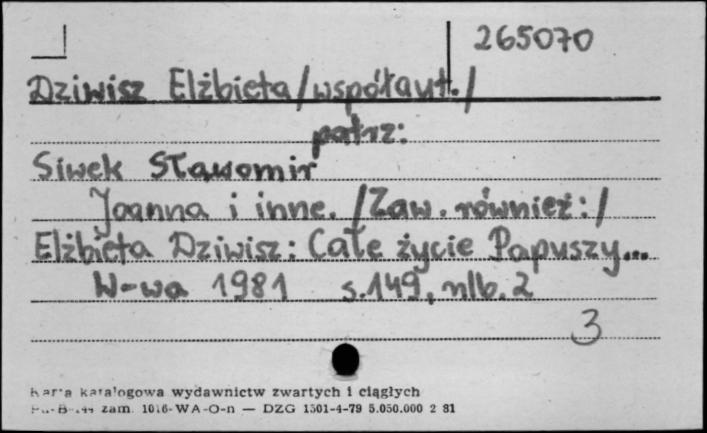 265070
Dziwisz Elżbieta /współaut./
patrz:
Siwek Sławomir
Joanna i inne. /Zaw. również:/
Elżbieta Dziwisz: Całe życie Papuszy...
W-wa 1981 s.149, nlb. 2
3
Karta katalogowa wydawnictw zwartych i ciągłych
zam. 1016-WA-O-n — DZG 1501-4-79 5.050.000 2 81